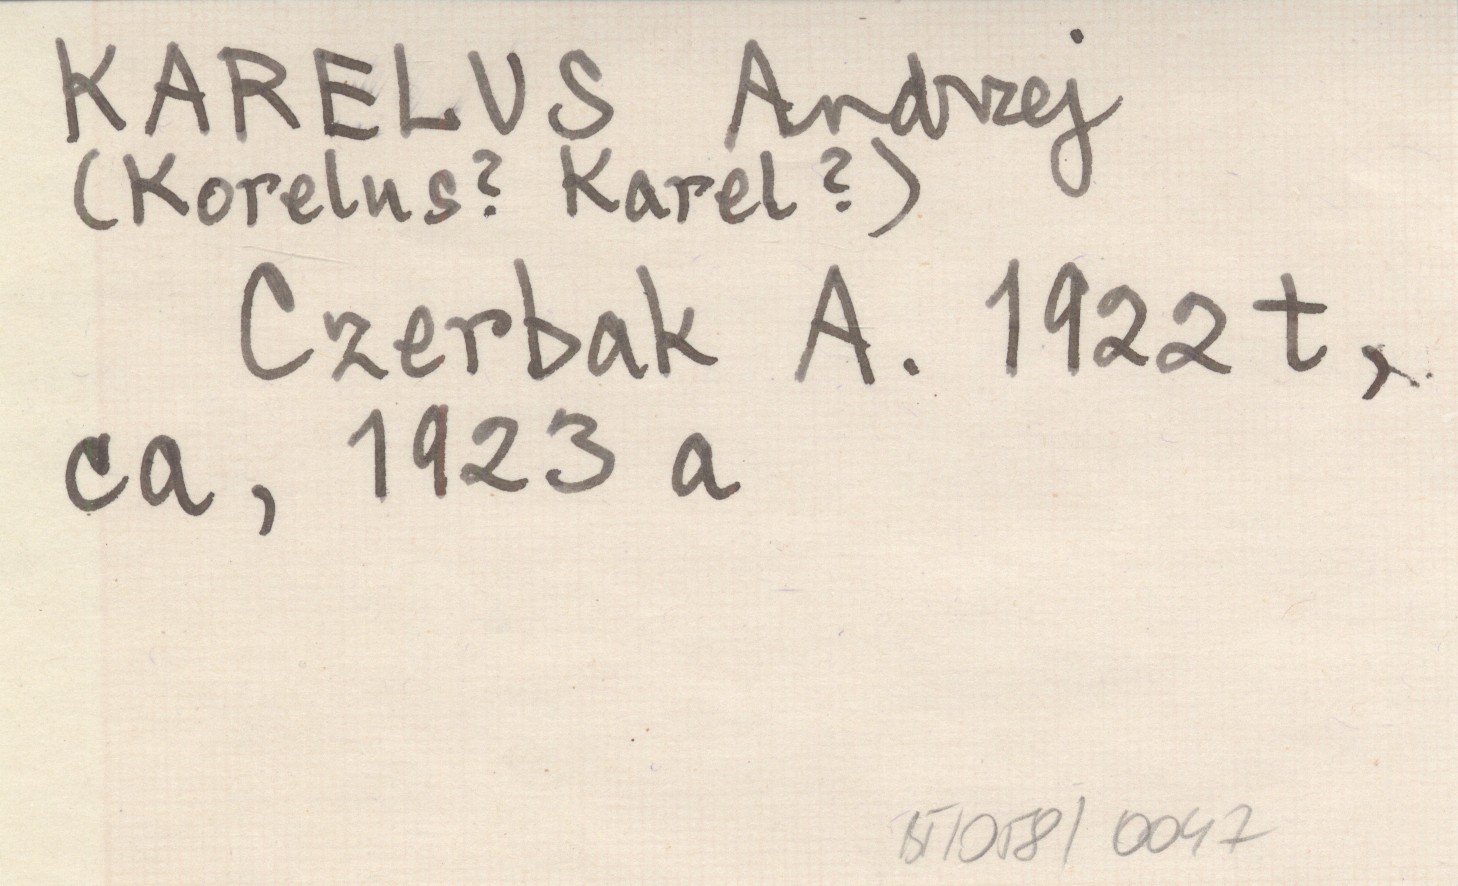 KARELUS Andrzej
(Korelus? Karel?)
Czerbak A. 1922 t,
ca, 1923 a
BT/058/0047